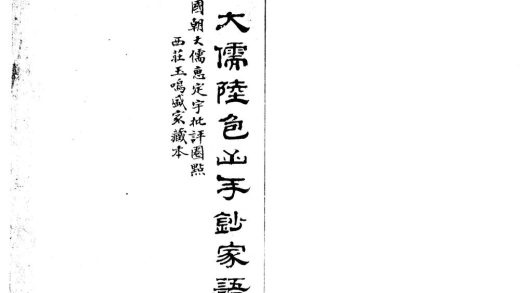 大儒陸包山手鈔家語
國朝大儒惠定宇批評圈點
西莊王鳴盛家藏本